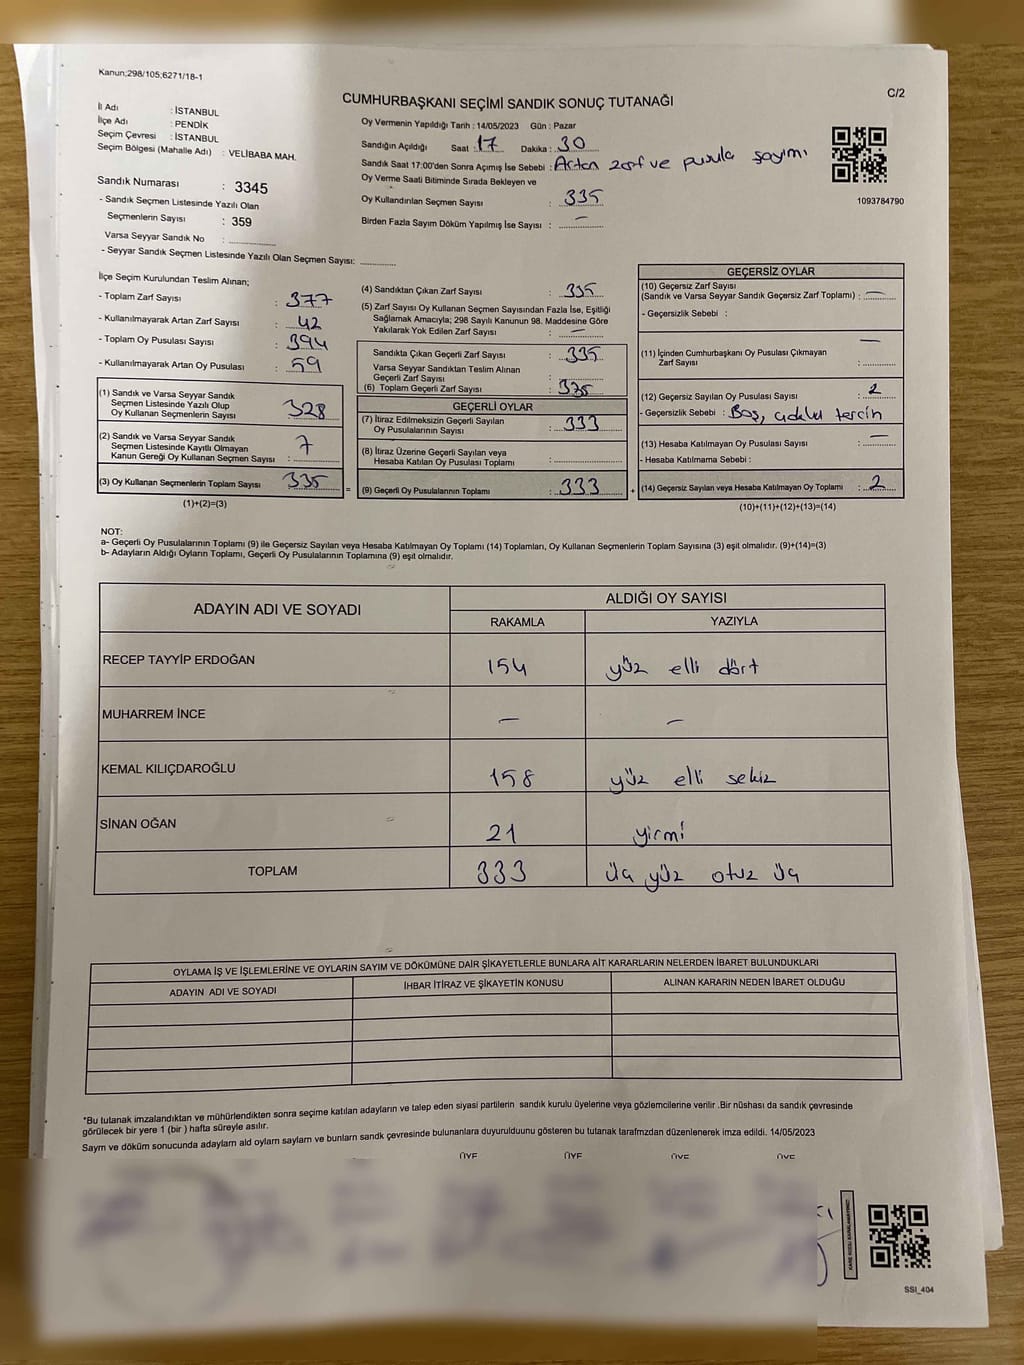 Kanun;298/105;6271/18-1
C/2
CUMHURBAŞKANI SEÇİMİ SANDIK SONUÇ TUTANAĞI
İl Adı : İSTANBUL
İlçe Adı : PENDİK
Seçim Çevresi : İSTANBUL
Seçim Bölgesi (Mahalle Adı) : VELİBABA MAH.
Sandık Numarası : 3345
- Sandık Seçmen Listesinde Yazılı Olan
Seçmenlerin Sayısı : 359
Varsa Seyyar Sandık No :
- Seyyar Sandık Seçmen Listesinde Yazılı Olan Seçmen Sayısı:
Oy Vermenin Yapıldığı Tarih : 14/05/2023 Gün : Pazar
Sandığın Açıldığı Saat : 17 Dakika : 30
Sandık Saat 17:00'den Sonra Açımış İse Sebebi : Artan zarf ve pusula sayımı
Oy Verme Saati Bitiminde Sırada Bekleyen ve
Oy Kullandırılan Seçmen Sayısı : 335
Birden Fazla Sayım Döküm Yapılmış İse Sayısı : —
1093784790
İlçe Seçim Kurulundan Teslim Alınan;
- Toplam Zarf Sayısı : 377
- Kullanılmayarak Artan Zarf Sayısı : 42
- Toplam Oy Pusulası Sayısı : 394
- Kullanılmayarak Artan Oy Pusulası : 59
(1) Sandık ve Varsa Seyyar Sandık
Seçmen Listesinde Yazılı Olup
Oy Kullanan Seçmenlerin Sayısı : 328
(2) Sandık ve Varsa Seyyar Sandık
Seçmen Listesinde Kayıtlı Olmayan
Kanun Gereği Oy Kullanan Seçmen Sayısı : 7
(3) Oy Kullanan Seçmenlerin Toplam Sayısı : 335
(1)+(2)=(3)
(4) Sandıktan Çıkan Zarf Sayısı : 335
(5) Zarf Sayısı Oy Kullanan Seçmen Sayısından Fazla İse, Eşitliği
Sağlamak Amacıyla; 298 Sayılı Kanunun 98. Maddesine Göre
Yakılarak Yok Edilen Zarf Sayısı : —
Sandıkta Çıkan Geçerli Zarf Sayısı : 335
Varsa Seyyar Sandıktan Teslim Alınan
Geçerli Zarf Sayısı :
(6) Toplam Geçerli Zarf Sayısı : 335
GEÇERLİ OYLAR
(7) İtiraz Edilmeksizin Geçerli Sayılan
Oy Pusulalarının Sayısı : 333
(8) İtiraz Üzerine Geçerli Sayılan veya
Hesaba Katılan Oy Pusulası Toplamı :
= (9) Geçerli Oy Pusulalarının Toplamı : 333
GEÇERSİZ OYLAR
(10) Geçersiz Zarf Sayısı
(Sandık ve Varsa Seyyar Sandık Geçersiz Zarf Toplamı) : —
- Geçersizlik Sebebi :
(11) İçinden Cumhurbaşkanı Oy Pusulası Çıkmayan
Zarf Sayısı : —
(12) Geçersiz Sayılan Oy Pusulası Sayısı : 2
- Geçersizlik Sebebi : Boş, çoklu tercih
(13) Hesaba Katılmayan Oy Pusulası Sayısı : —
- Hesaba Katılmama Sebebi :
+ (14) Geçersiz Sayılan veya Hesaba Katılmayan Oy Toplamı : 2
(10)+(11)+(12)+(13)=(14)
NOT:
a- Geçerli Oy Pusulalarının Toplamı (9) ile Geçersiz Sayılan veya Hesaba Katılmayan Oy Toplamı (14) Toplamları, Oy Kullanan Seçmenlerin Toplam Sayısına (3) eşit olmalıdır. (9)+(14)=(3)
b- Adayların Aldığı Oyların Toplamı, Geçerli Oy Pusulalarının Toplamına (9) eşit olmalıdır.
ADAYIN ADI VE SOYADI ALDIĞI OY SAYISI
RAKAMLA YAZIYLA
RECEP TAYYİP ERDOĞAN 154 yüz elli dört
MUHARREM İNCE — —
KEMAL KILIÇDAROĞLU 158 yüz elli sekiz
SİNAN OĞAN 21 yirmi
TOPLAM 333 üç yüz otuz üç
OYLAMA İŞ VE İŞLEMLERİNE VE OYLARIN SAYIM VE DÖKÜMÜNE DAİR ŞİKAYETLERLE BUNLARA AİT KARARLARIN NELERDEN İBARET BULUNDUKLARI
ADAYIN ADI VE SOYADI İHBAR İTİRAZ VE ŞİKAYETİN KONUSU ALINAN KARARIN NEDEN İBARET OLDUĞU
*Bu tutanak imzalandıktan ve mühürlendikten sonra seçime katılan adayların ve talep eden siyasi partilerin sandık kurulu üyelerine veya gözlemcilerine verilir .Bir nüshası da sandık çevresinde
görülecek bir yere 1 (bir ) hafta süreyle asılır.
Saym ve döküm sonucunda adaylam ald oylarn saylam ve bunlarn sandk çevresinde bulunanlara duyurulduunu gösteren bu tutanak tarafmzdan düzenlenerek imza edildi. 14/05/2023
ÜYE ÜYE ÜYE ÜYE
SSI_404